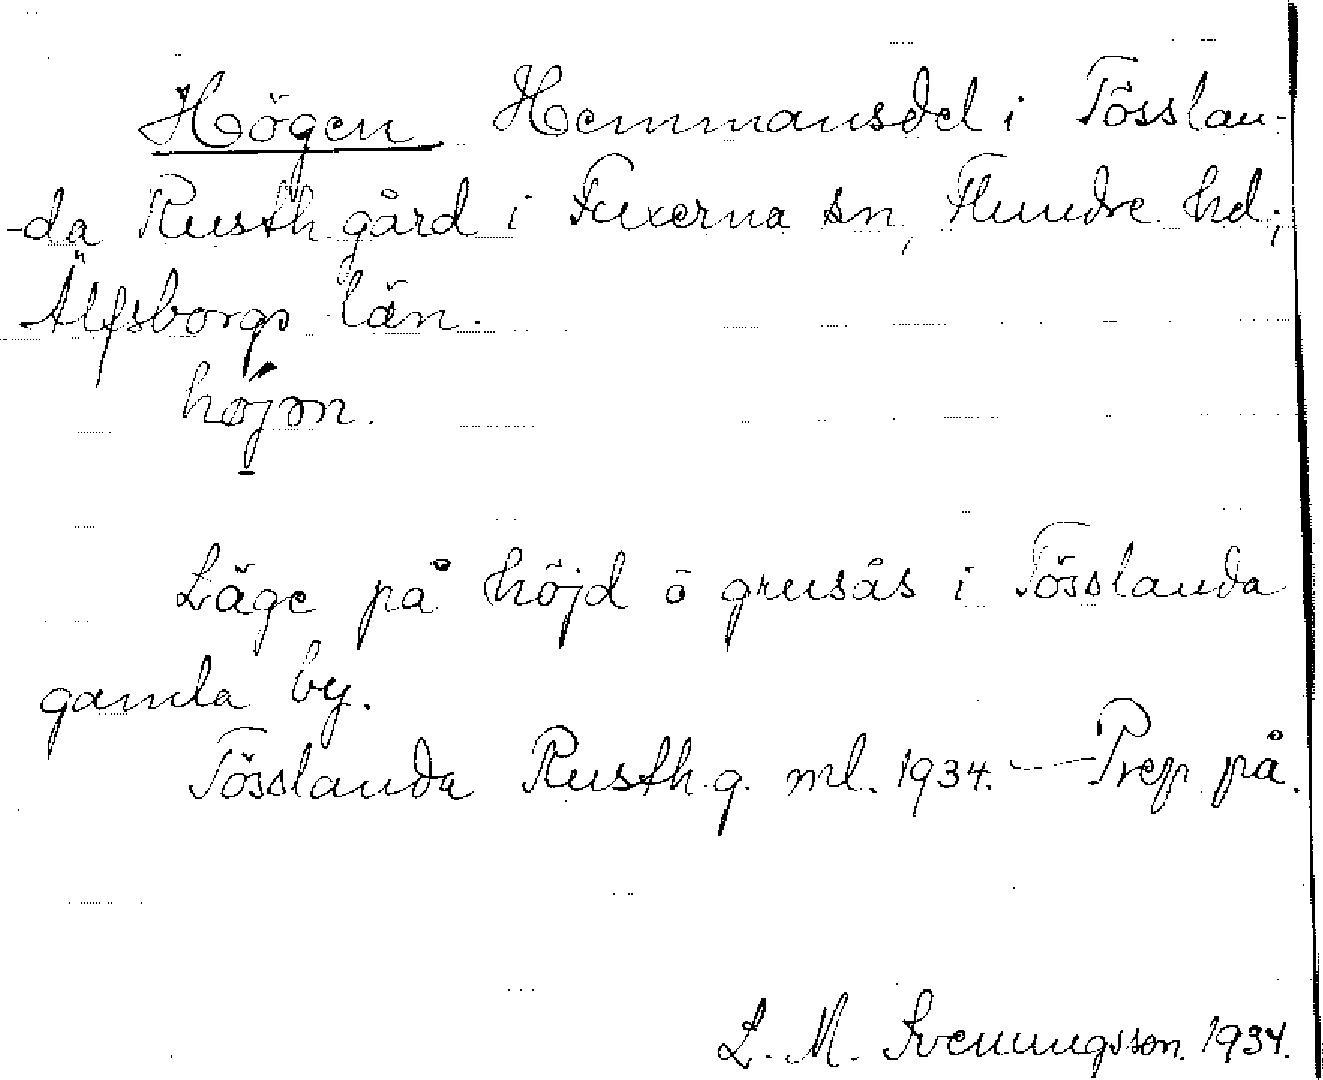 Högen Hemmansdel i Tösslan-
-da Rusthgård i Fuxerna sn, Flundre hd;
Älfsborgs län.
höjɷn.
Läge på höjd o grusås i Tösslanda
gamla by.
Tösslanda Rusth.g. ml. 1934. — Prep på.
L. M. Svenungsson. 1934.